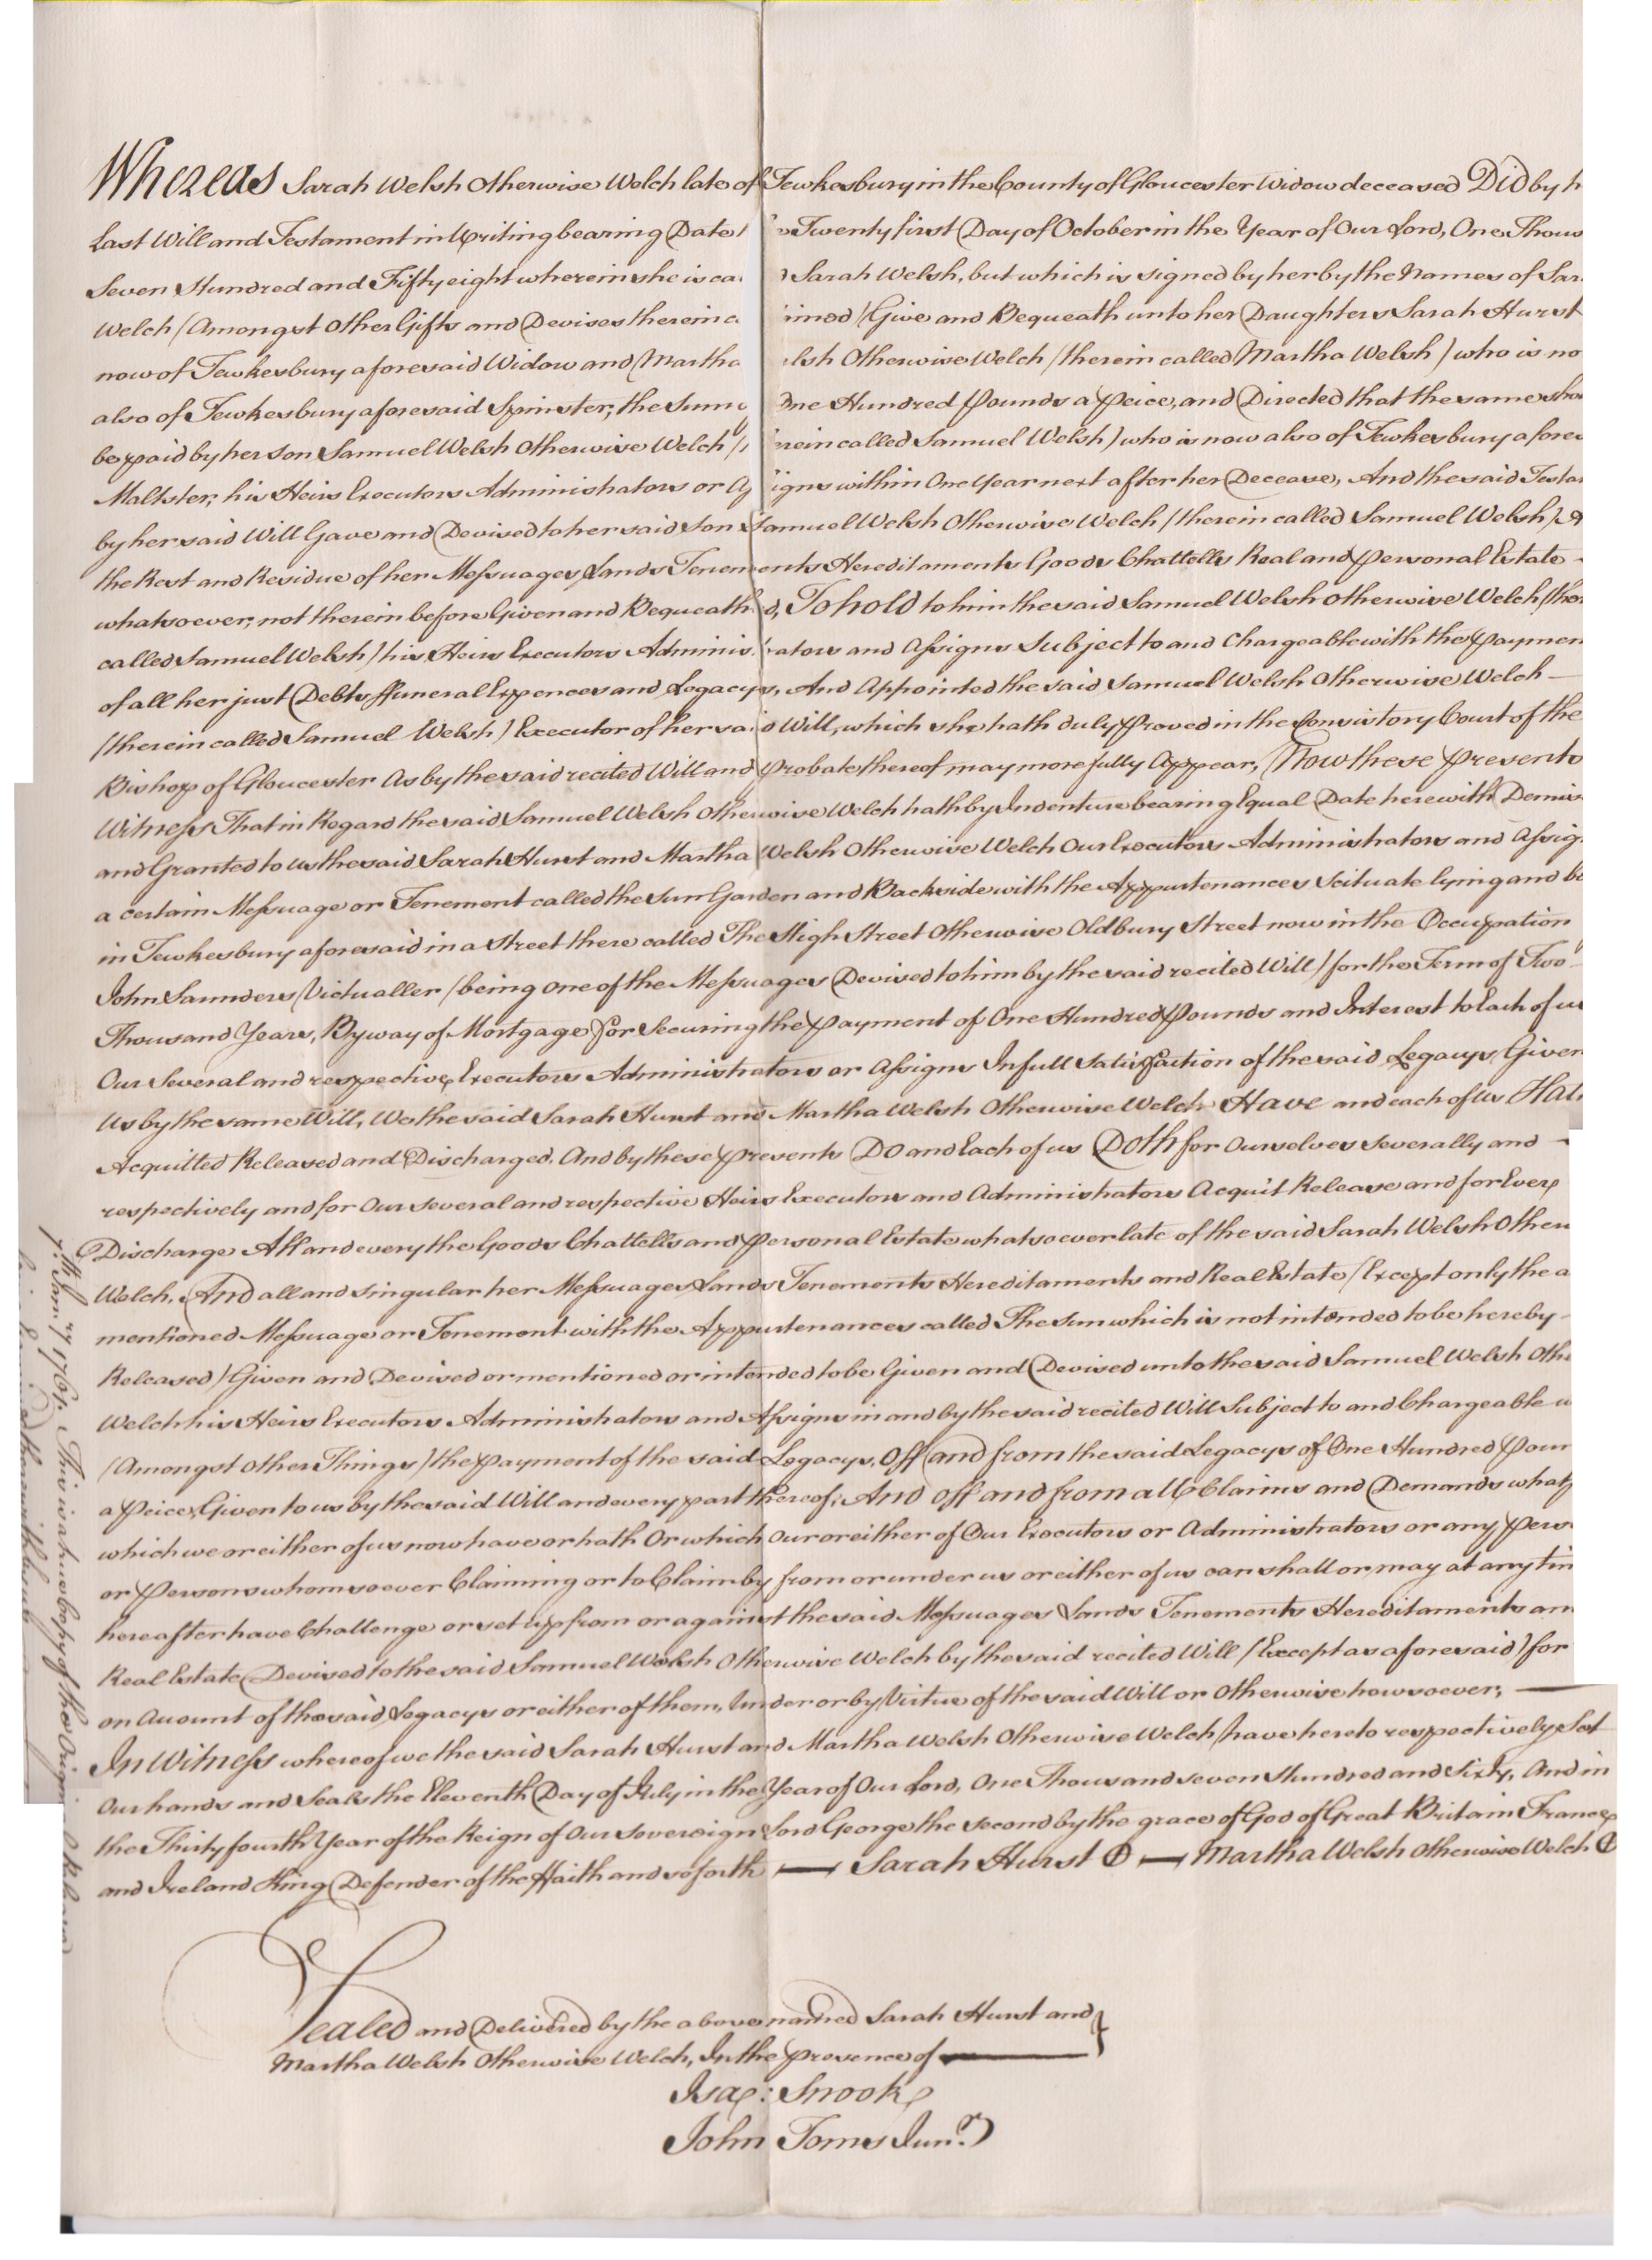 Whereas Sarah Welsh Otherwise Welch late of Tewkesbury in the County of Gloucester Widow deceased Did by h
Last Will and Testament in Writing bearing Date Twenty first Day of October in the Year of Our Lord, One Thous
Seven Hundred and Fifty eight wherein she is ca Sarah Welsh, but which is signed by her by the Names of Sar
Welch (Amongst Other Gifts and Devises therein c ined) Give and Bequeath unto her Daughters Sarah Hurst
now of Tewkesbury aforesaid Widow and Martha lsh Otherwise Welch (therein called Martha Welsh) who is no
also of Tewkesbury aforesaid Spinster, the Sum o One Hundred Pounds a Peice, and Directed that the same sho
be paid by her Son Samuel Welsh Otherwise Welch ( rein called Samuel Welsh) who is now also of Tewkesbury afores
Maltster, his Heirs Executors Administrators or As igns within One Year next after her Decease, And the said Testa
by her said Will Gave and Devised to her said Son Samuel Welsh Otherwise Welch (therein called Samuel Welsh) A
the Rest and Residue of her Messuages Lands Tenements Hereditaments Goods Chattells Real and Personal Estate -
whatsoever, not therein before Given and Bequeathed, To hold to him the said Samuel Welsh Otherwise Welch (ther
called Samuel Welsh) his Heirs Executors Administrators and Assigns Subject to and Chargeable with the Paymen
of all her just Debts ffuneral Expences and Legacys, And Appointed the said Samuel Welsh Otherwise Welch —
(therein called Samuel Welsh) Executor of her said Will, which she hath duly Proved in the Consistory Court of the
Bishop of Gloucester As by the said recited Will and Probate thereof may more fully Appear, Now these Presents
Witness That in Regard the said Samuel Welsh Otherwise Welch hath by Indenture bearing Equal Date herewith Demis
and Granted to us the said Sarah Hurst and Martha Welsh Otherwise Welch Our Executors Administrators and Assig
a certain Messuage or Tenement called the Sun Garden and Backside with the Appurtenances Scituate lying and be
in Tewkesbury aforesaid in a Street there called The High Street Otherwise Oldbury Street now in the Occupation
John Saunders Victualler (being One of the Messuages Devised to him by the said recited Will) for the Term of Two
Thousand Years, By way of Mortgage for Securing the Payment of One Hundred Pounds and Interest to Each of us
Our Several and respective Executors Administrators or Assigns In full Satisfaction of the said Legacys Given
Us by the same Will, We the said Sarah Hurst and Martha Welsh Otherwise Welch Have and each of us Hath
Acquitted Released and Discharged, And by these Presents DO and Each of us Doth for Ourselves Severally and -
respectively and for Our Several and respective Heirs Executors and Administrators Acquit Release and for Ever
Discharge All and every the Goods Chattells and Personal Estate whatsoever late of the said Sarah Welsh Otherw
Welch, And all and singular her Messuages Lands Tenements Hereditaments and Real Estate (Except only the a
mentioned Messuage or Tenement with the Appurtenances called The Sun which is not intended to be hereby -
Released) Given and Devised or mentioned or intended to be Given and Devised unto the said Samuel Welsh Othe
Welch his Heirs Executors Administrators and Assigns in and by the said recited Will Subject to and Chargeable w
(Amongst Other Things) the Payment of the said Legacys, Off and from the said Legacys of One Hundred Poun
a Peice Given to us by the said Will and every part thereof; And off and from all Claims and Demands whats
which we or either of us now have or hath Or which Our or either of Our Executors or Administrators or any Pers
or Persons whomsoever Claiming or to Claim by from or under us or either of us can shall or may at any tim
hereafter have Challenge or set up from or against the said Messuages Lands Tenements Hereditaments an
Real Estate Devised to the said Samuel Welsh Otherwise Welch by the said recited Will (Except as aforesaid) for
on Account of the said Legacys or either of them, Under or by Virtue of the said Will or Otherwise howsoever; —
In Witness whereof we the said Sarah Hurst and Martha Welsh Otherwise Welch have hereto respectively Set
Our hands and Seals the Eleventh Day of July in the Year of Our Lord, One Thousand Seven Hundred and Sixty, And in
the Thirty fourth Year of the Reign of Our Sovereign Lord George the Second by the grace of God of Great Britain France
and Ireland King Defender of the ffaith and so forth — Sarah Hurst — Martha Welsh Otherwise Welch
Sealed and Delivered by the above named Sarah Hurst and
Martha Welsh Otherwise Welch, In the Presence of —
Isac: Snook
John Tomes Junr.
7th Jan:ry 1761, This is a true Copy of the Origi